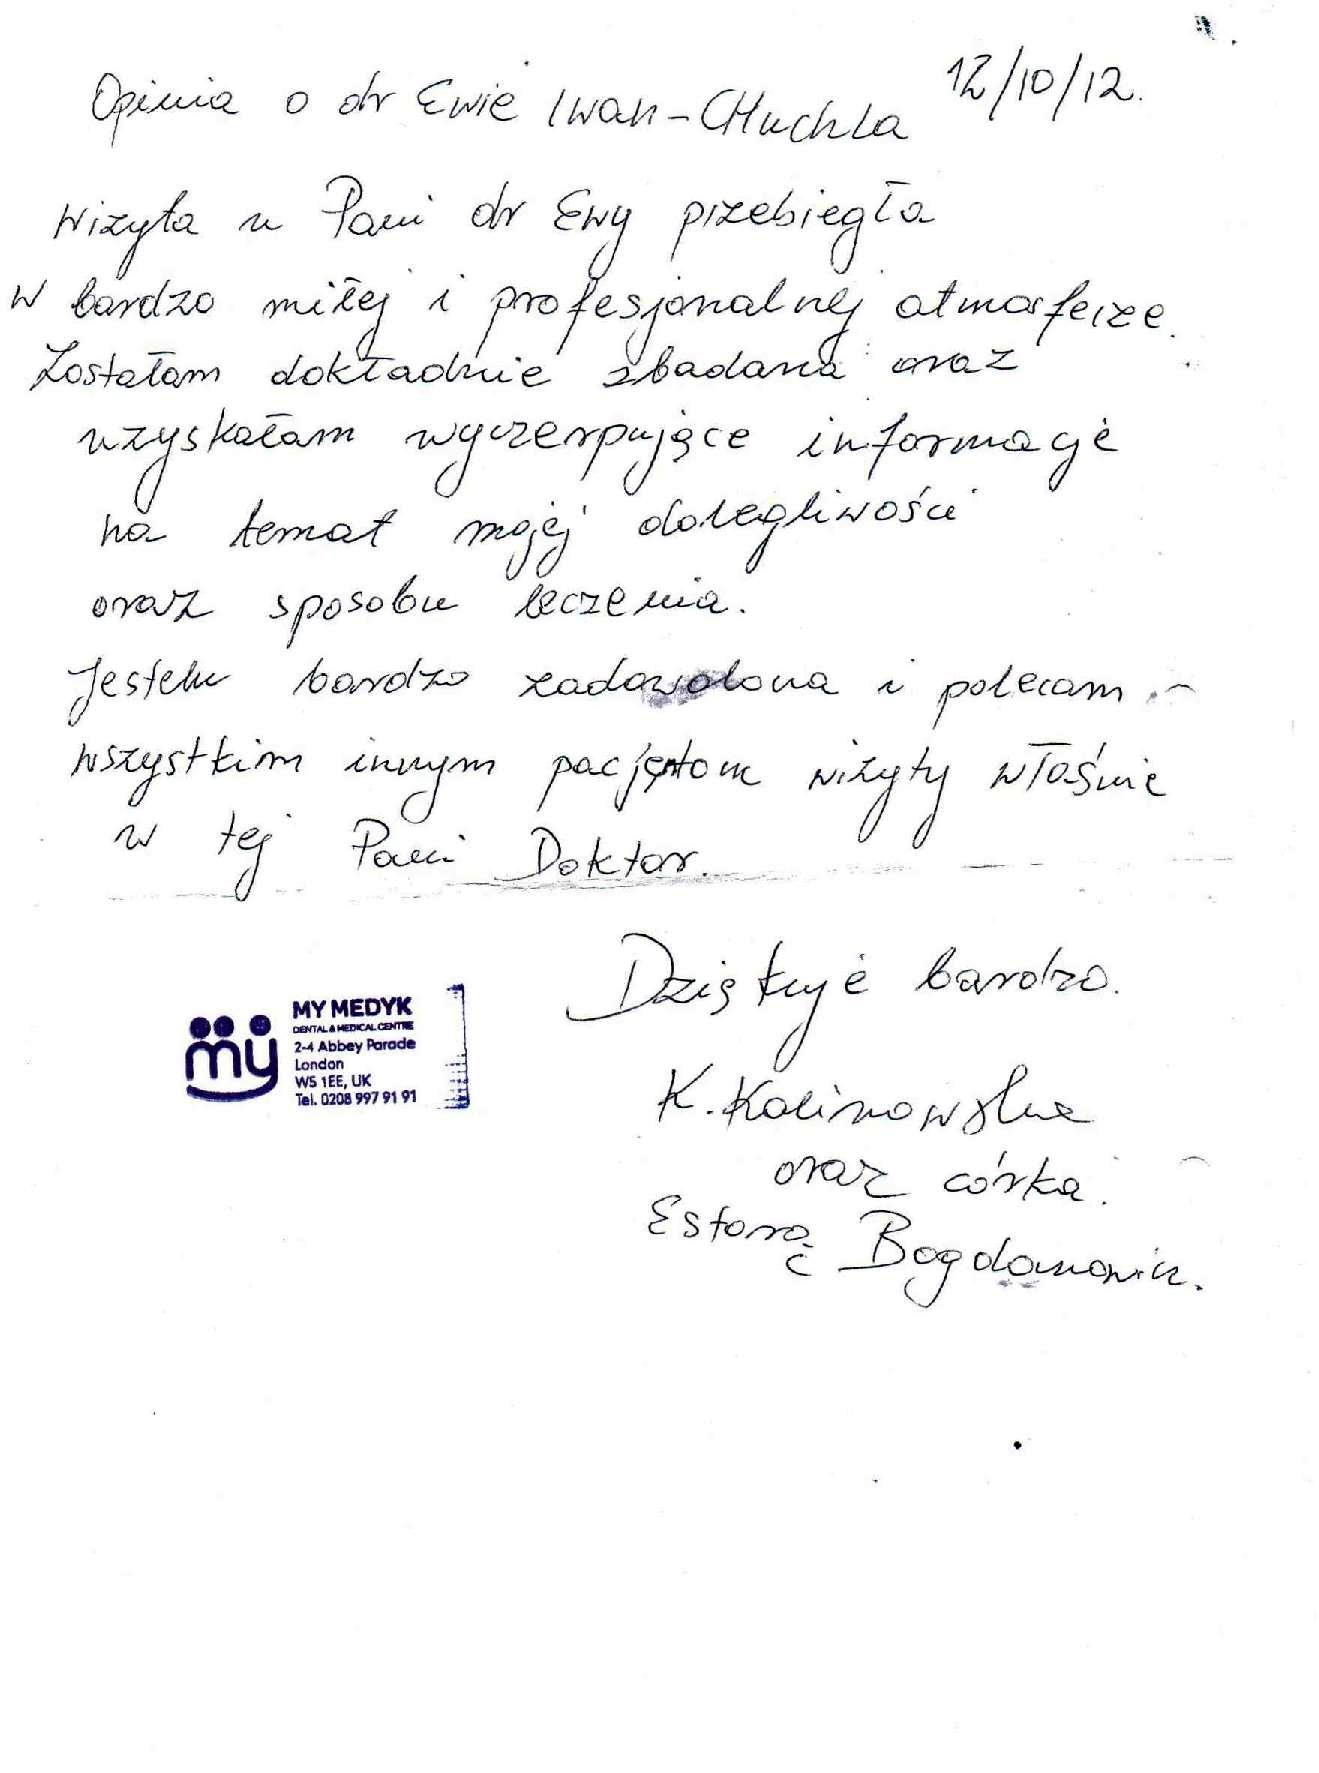 12/10/12.
Opinia o dr Ewie Iwan-CHuchla
Wizyta u Pani dr Ewy przebiegła
w bardzo miłej i profesjonalnej atmosferze.
Zostałam dokładnie zbadana oraz
uzyskałam wyczerpujące informacje
na temat mojej dolegliwości
oraz sposobu leczenia.
Jestem bardzo zadowolona i polecam
wszystkim innym pacjentom wizyty właśnie
w tej Pani Doktor.
Dziękuję bardzo.
K. Kalinowska
oraz córka.
Bogdanowicz.
my
MY MEDYK
DENTAL & MEDICAL CENTRE
2-4 Abbey Parade
London
W5 1EE, UK
Tel. 0208 997 91 91